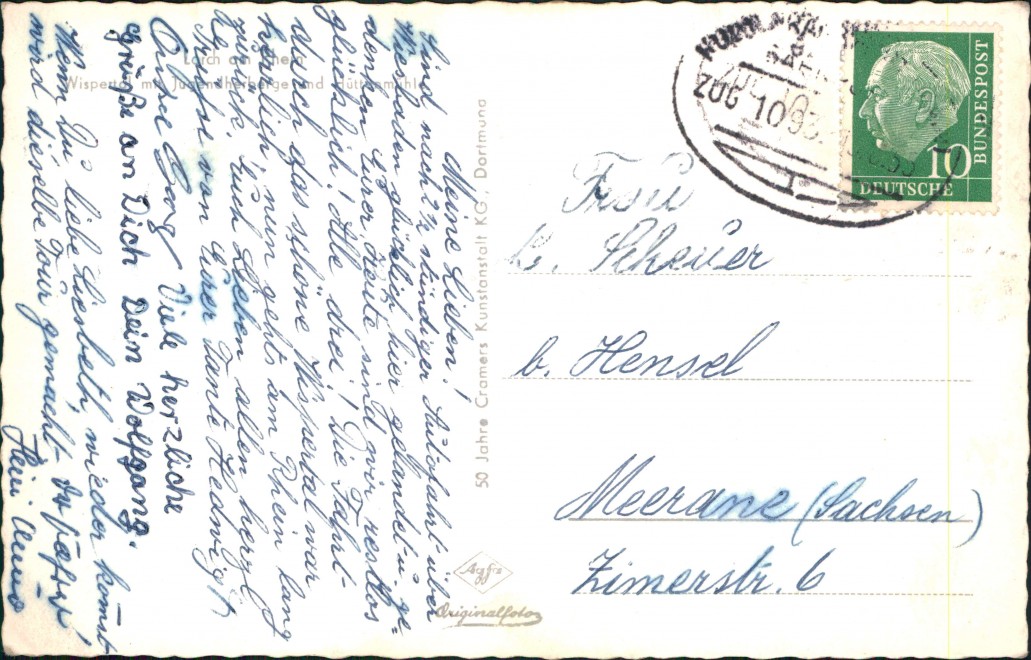 Lorch am Rhein
Wispertal mit Jugendherberge und Hüttenmühle
Meine Lieben!
Sind nach 2½ stündiger Autofahrt über
Wiesbaden glücklich hier gelandet u. ge-
denken Eurer. Heute sind wir restlos
glücklich! Alle drei! Die Fahrt
durch das schöne Wispertal war
herrlich, nun geht's am Rhein lang
zurück. Euch Lieben allen herzl.
Grüße von Eurer Tante Hedwig
Viele herzliche
Grüße an Dich Dein Wolfgang.
Wenn Du liebe Liesbeth, wieder komst
wird dieselbe Tour gemacht
50 Jahre Cramers Kunstanstalt KG, Dortmund
Agfa
Originalfoto
ZUG 1093
10
DEUTSCHE
BUNDESPOST
Frau
Scheuer
b. Hensel
Meerane (Sachsen)
Zimerstr. 6